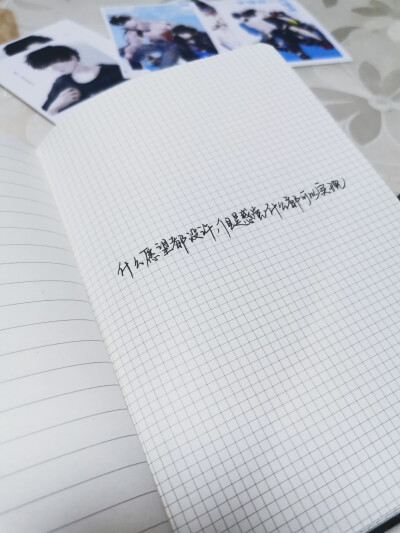 什么愿望都没许，但是感觉什么都可以实现